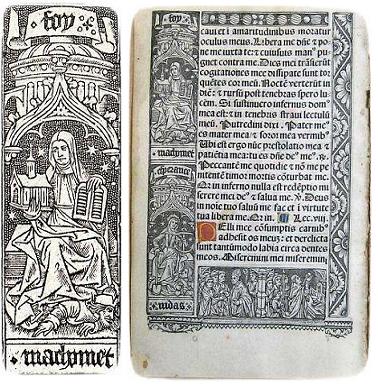 foy
machomet
caui et i amaritudinibus moratur
oculus meus. Libera me dñe & po=
ne me iuxta te: & cuiusuis manꝰ pu
gnet contra me. Dies mei trãsierũt
cogitationes mee dissipate sunt tor
quẽtes cor meũ. Noctẽ verterũt in
diẽ: & rursũ post tenebras spero lu
cem. Si sustinuero infernus domꝰ
mea est: & in tenebris straui lectulũ
meũ. Putredini dixi. Pater meꝰ
es mater mea & soror mea vermibꝰ
Ubi est ergo nũc prestolatio mea &
patiẽtia mea: tu es dñe deꝰ meꝰ. ℟.
Peccantẽ me quotidie & nõ me pe
nitentẽ timor mortis cõturbat me.
Qr in inferno nulla est redẽptio mi
serere mei deꝰ & salua me. ℣. Deus
i noie tuo saluũ me fac & i virtute
tua libera me. Qr in. Lec. viii.
Pelli mee cõsumptis carnibꝰ
adhesit os meũ: & derelicta
sunt tantũmodo labia circa dentes
meos. Miseremini mei miseremini
machomet
esperance
iudas